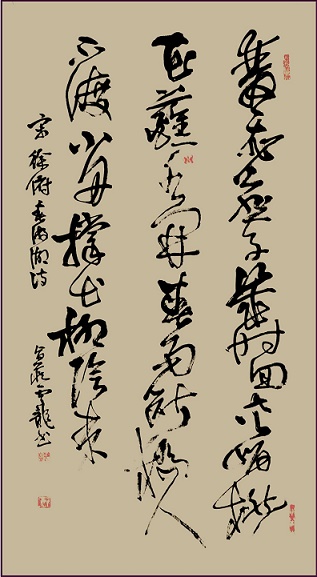 雙飛燕子幾时回夾岸桃
花蘸水開春雨斷橋人
不渡小舟撐出柳陰來
宋徐俯春游湖诗
雲龍书